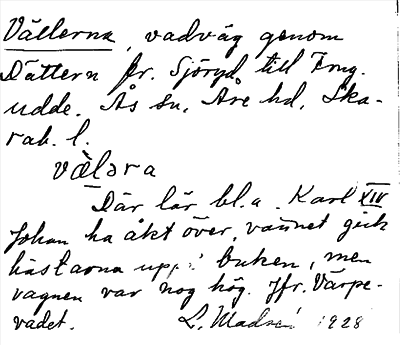 Vällerna, vadväg genom
Dättern fr. Sjöryd till Frug.
udde. Ås sn, Åse hd, Ska-
rab. l.
väl̄ǝra
Där lär bl.a. Karl XIV
Johan ha åkt över, vattnet gick
hästarna upp i buken, men
vagnen var nog hög. Jfr. Värpe-
vadet.
L. 1928